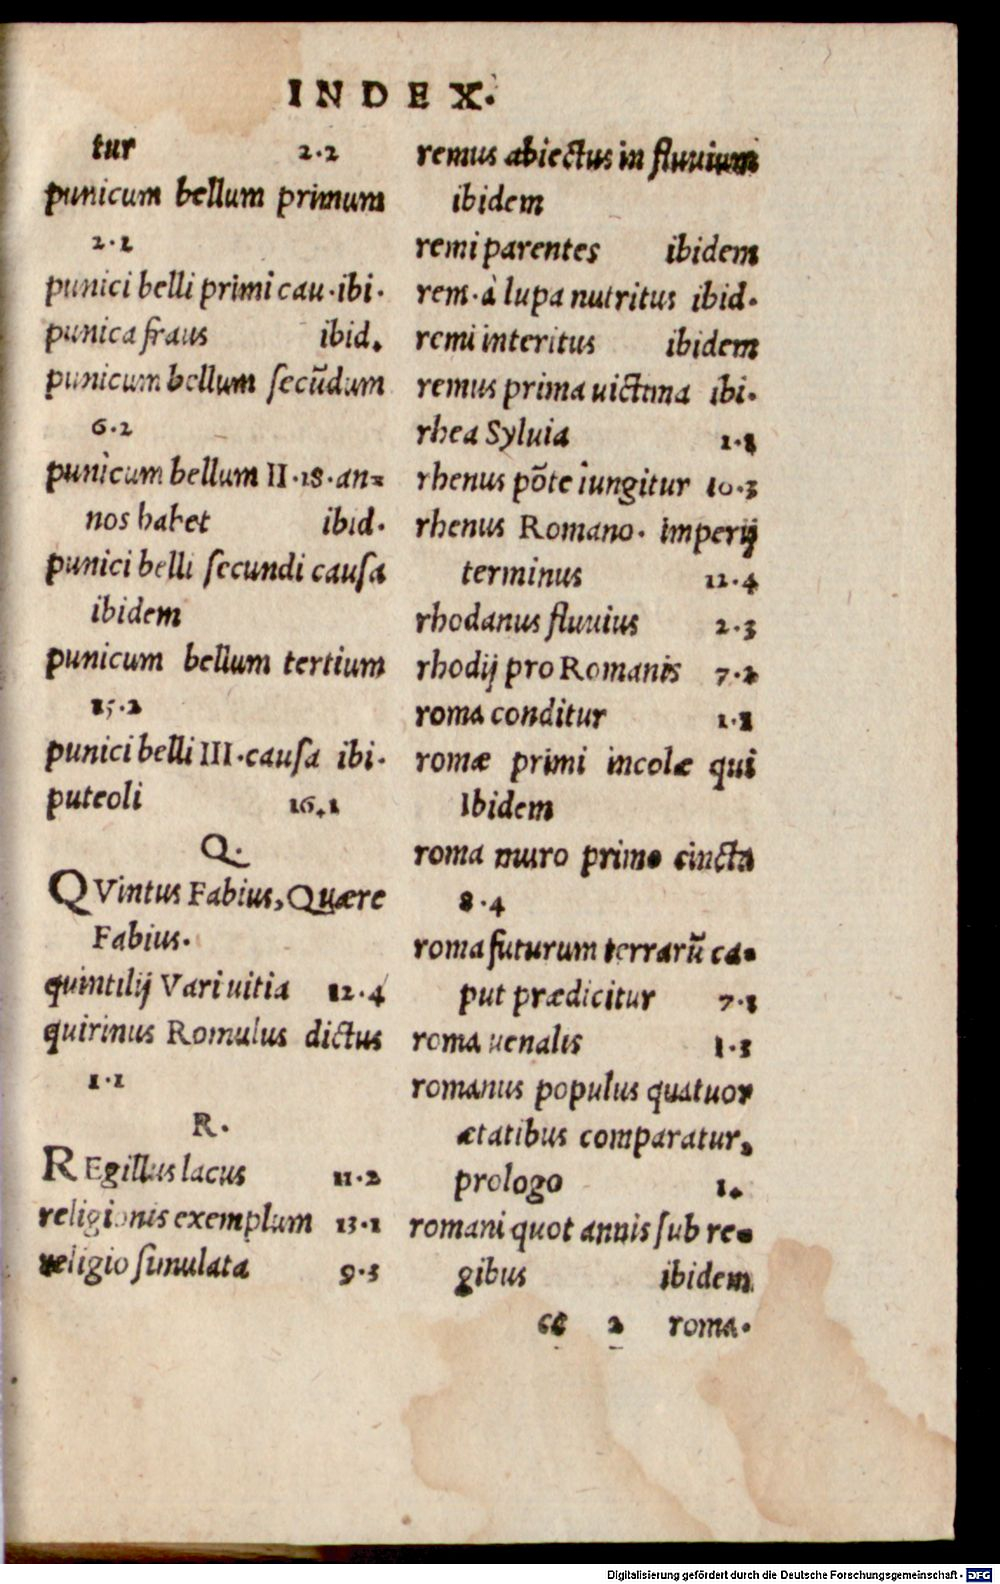 INDEX.
tur 2.2
punicum bellum primum
2.1
punici belli primi cau.ibi.
punica fraus ibid.
punicum bellum secũdum
6.2
punicum bellum II.18.an=
nos habet ibid.
punici belli secundi causa
ibidem
punicum bellum tertium
15.2
punici belli III.causa ibi.
puteoli 16.1
Q.
QVintus Fabius, Quære
Fabius.
quintilij Vari uitia 12.4
quirinus Romulus dictus
1.1
R.
REgillus lacus 11.2
religionis exemplum 13.1
religio simulata 9.3
remus abiectus in fluuium
ibidem
remi parentes ibidem
rem.à lupa nutritus ibid.
remi interitus ibidem
remus prima uictima ibi.
rhea Syluia 1.1
rhenus põte iungitur 10.3
rhenus Romano. imperij
terminus 12.4
rhodanus fluuius 2.3
rhodij pro Romanis 7.2
roma conditur 1.1
romæ primi incolæ qui
Ibidem
roma muro primo cincta
8.4
roma futurum terrarũ ca-
put prædicitur 7.1
roma uenalis 1.3
romanus populus quatuor
ætatibus comparatur,
prologo 1.
romani quot annis sub re-
gibus ibidem
2 roma.
Digitalisierung gefördert durch die Deutsche Forschungsgemeinschaft - DFG